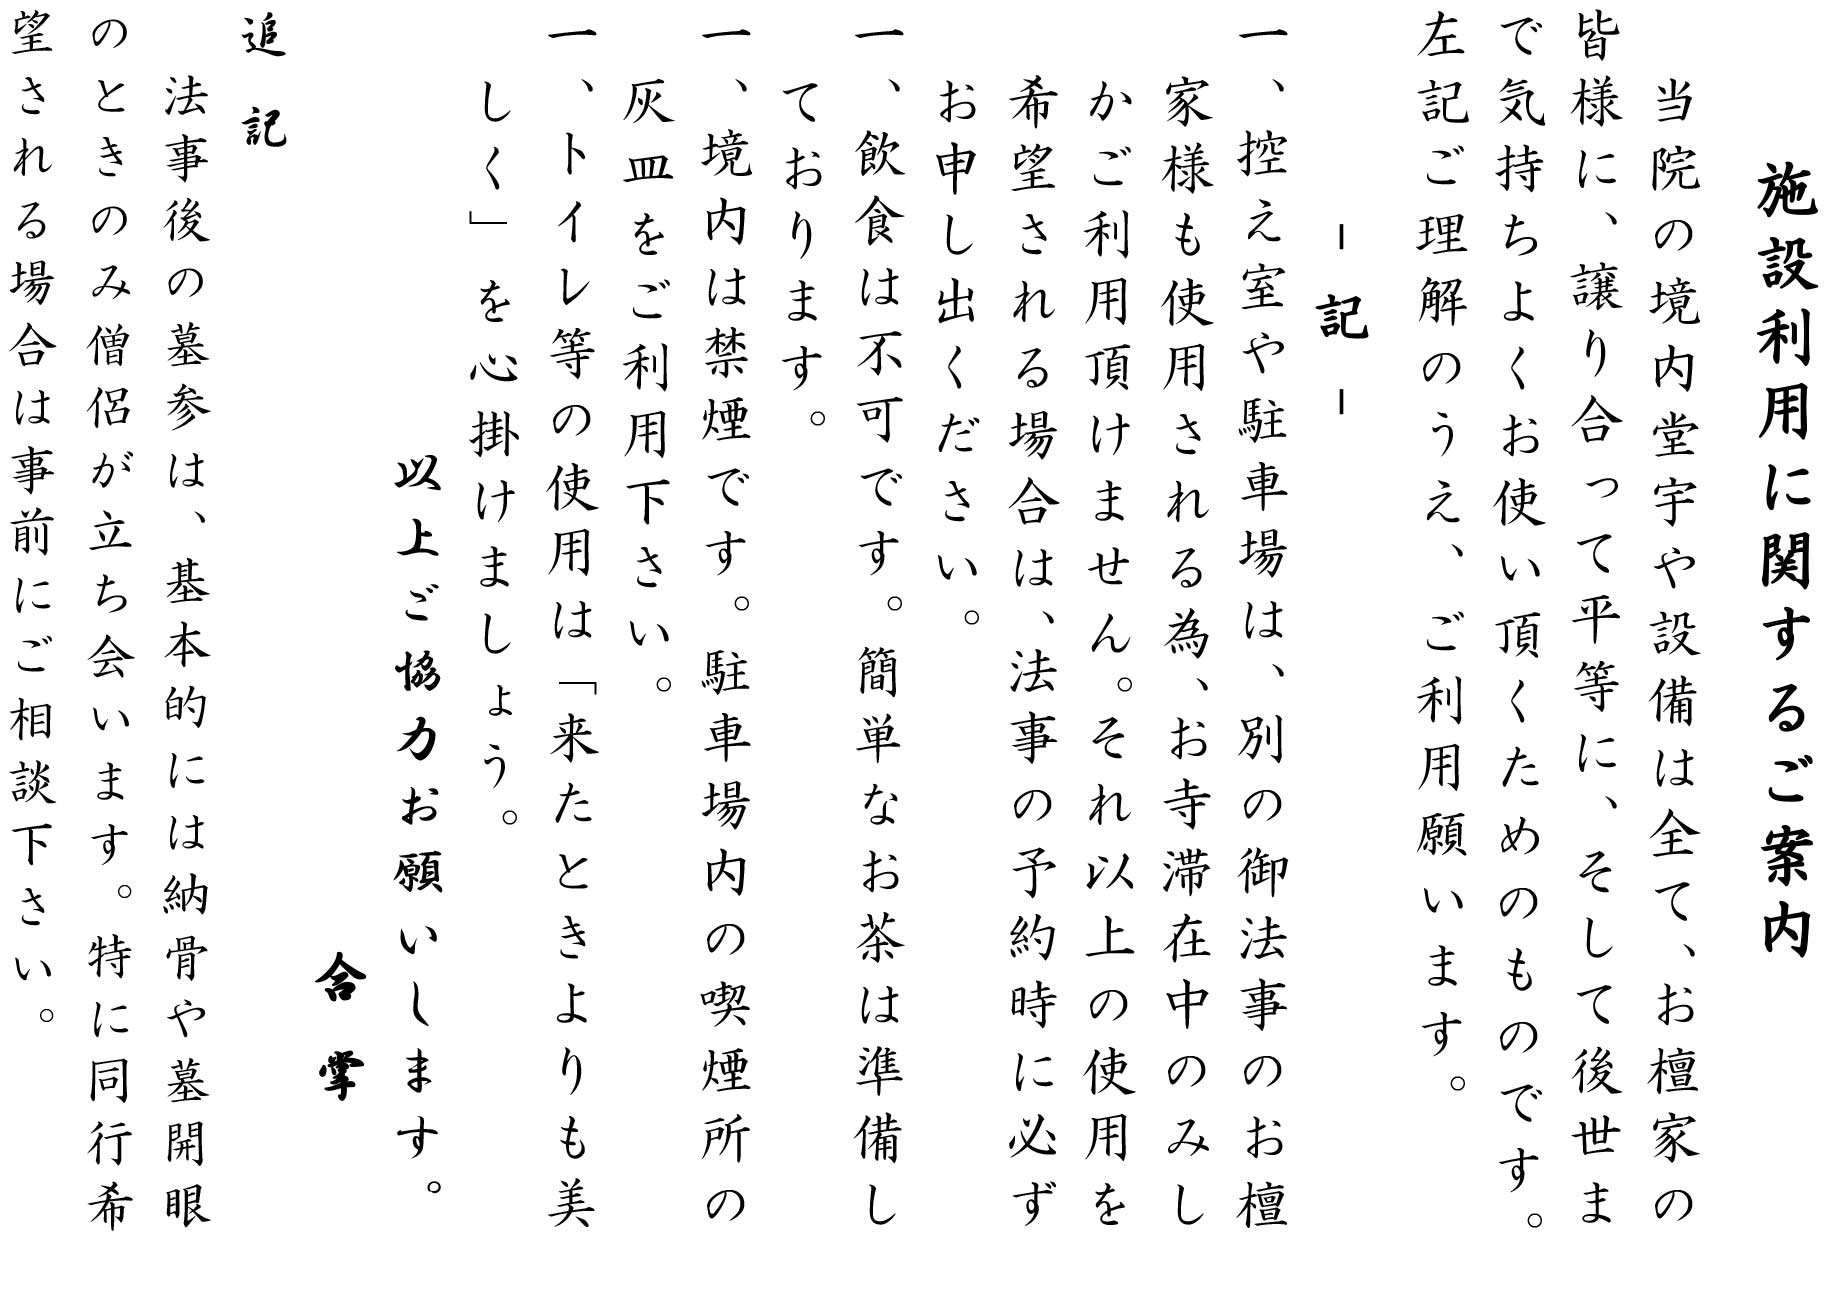 施設利用に関するご案内
当院の境内堂宇や設備は全て、お檀家の
皆様に、譲り合って平等に、そして後世ま
で気持ちよくお使い頂くためのものです。
左記ご理解のうえ、ご利用願います。
－記－
一、控え室や駐車場は、別の御法事のお檀
家様も使用される為、お寺滞在中のみし
かご利用頂けません。それ以上の使用を
希望される場合は、法事の予約時に必ず
お申し出ください。
一、飲食は不可です。簡単なお茶は準備し
ております。
一、境内は禁煙です。駐車場内の喫煙所の
灰皿をご利用下さい。
一、トイレ等の使用は「来たときよりも美
しく」を心掛けましょう。
以上ご協力お願いします。
合掌
追記
法事後の墓参は、基本的には納骨や墓開眼
のときのみ僧侶が立ち会います。特に同行希
望される場合は事前にご相談下さい。